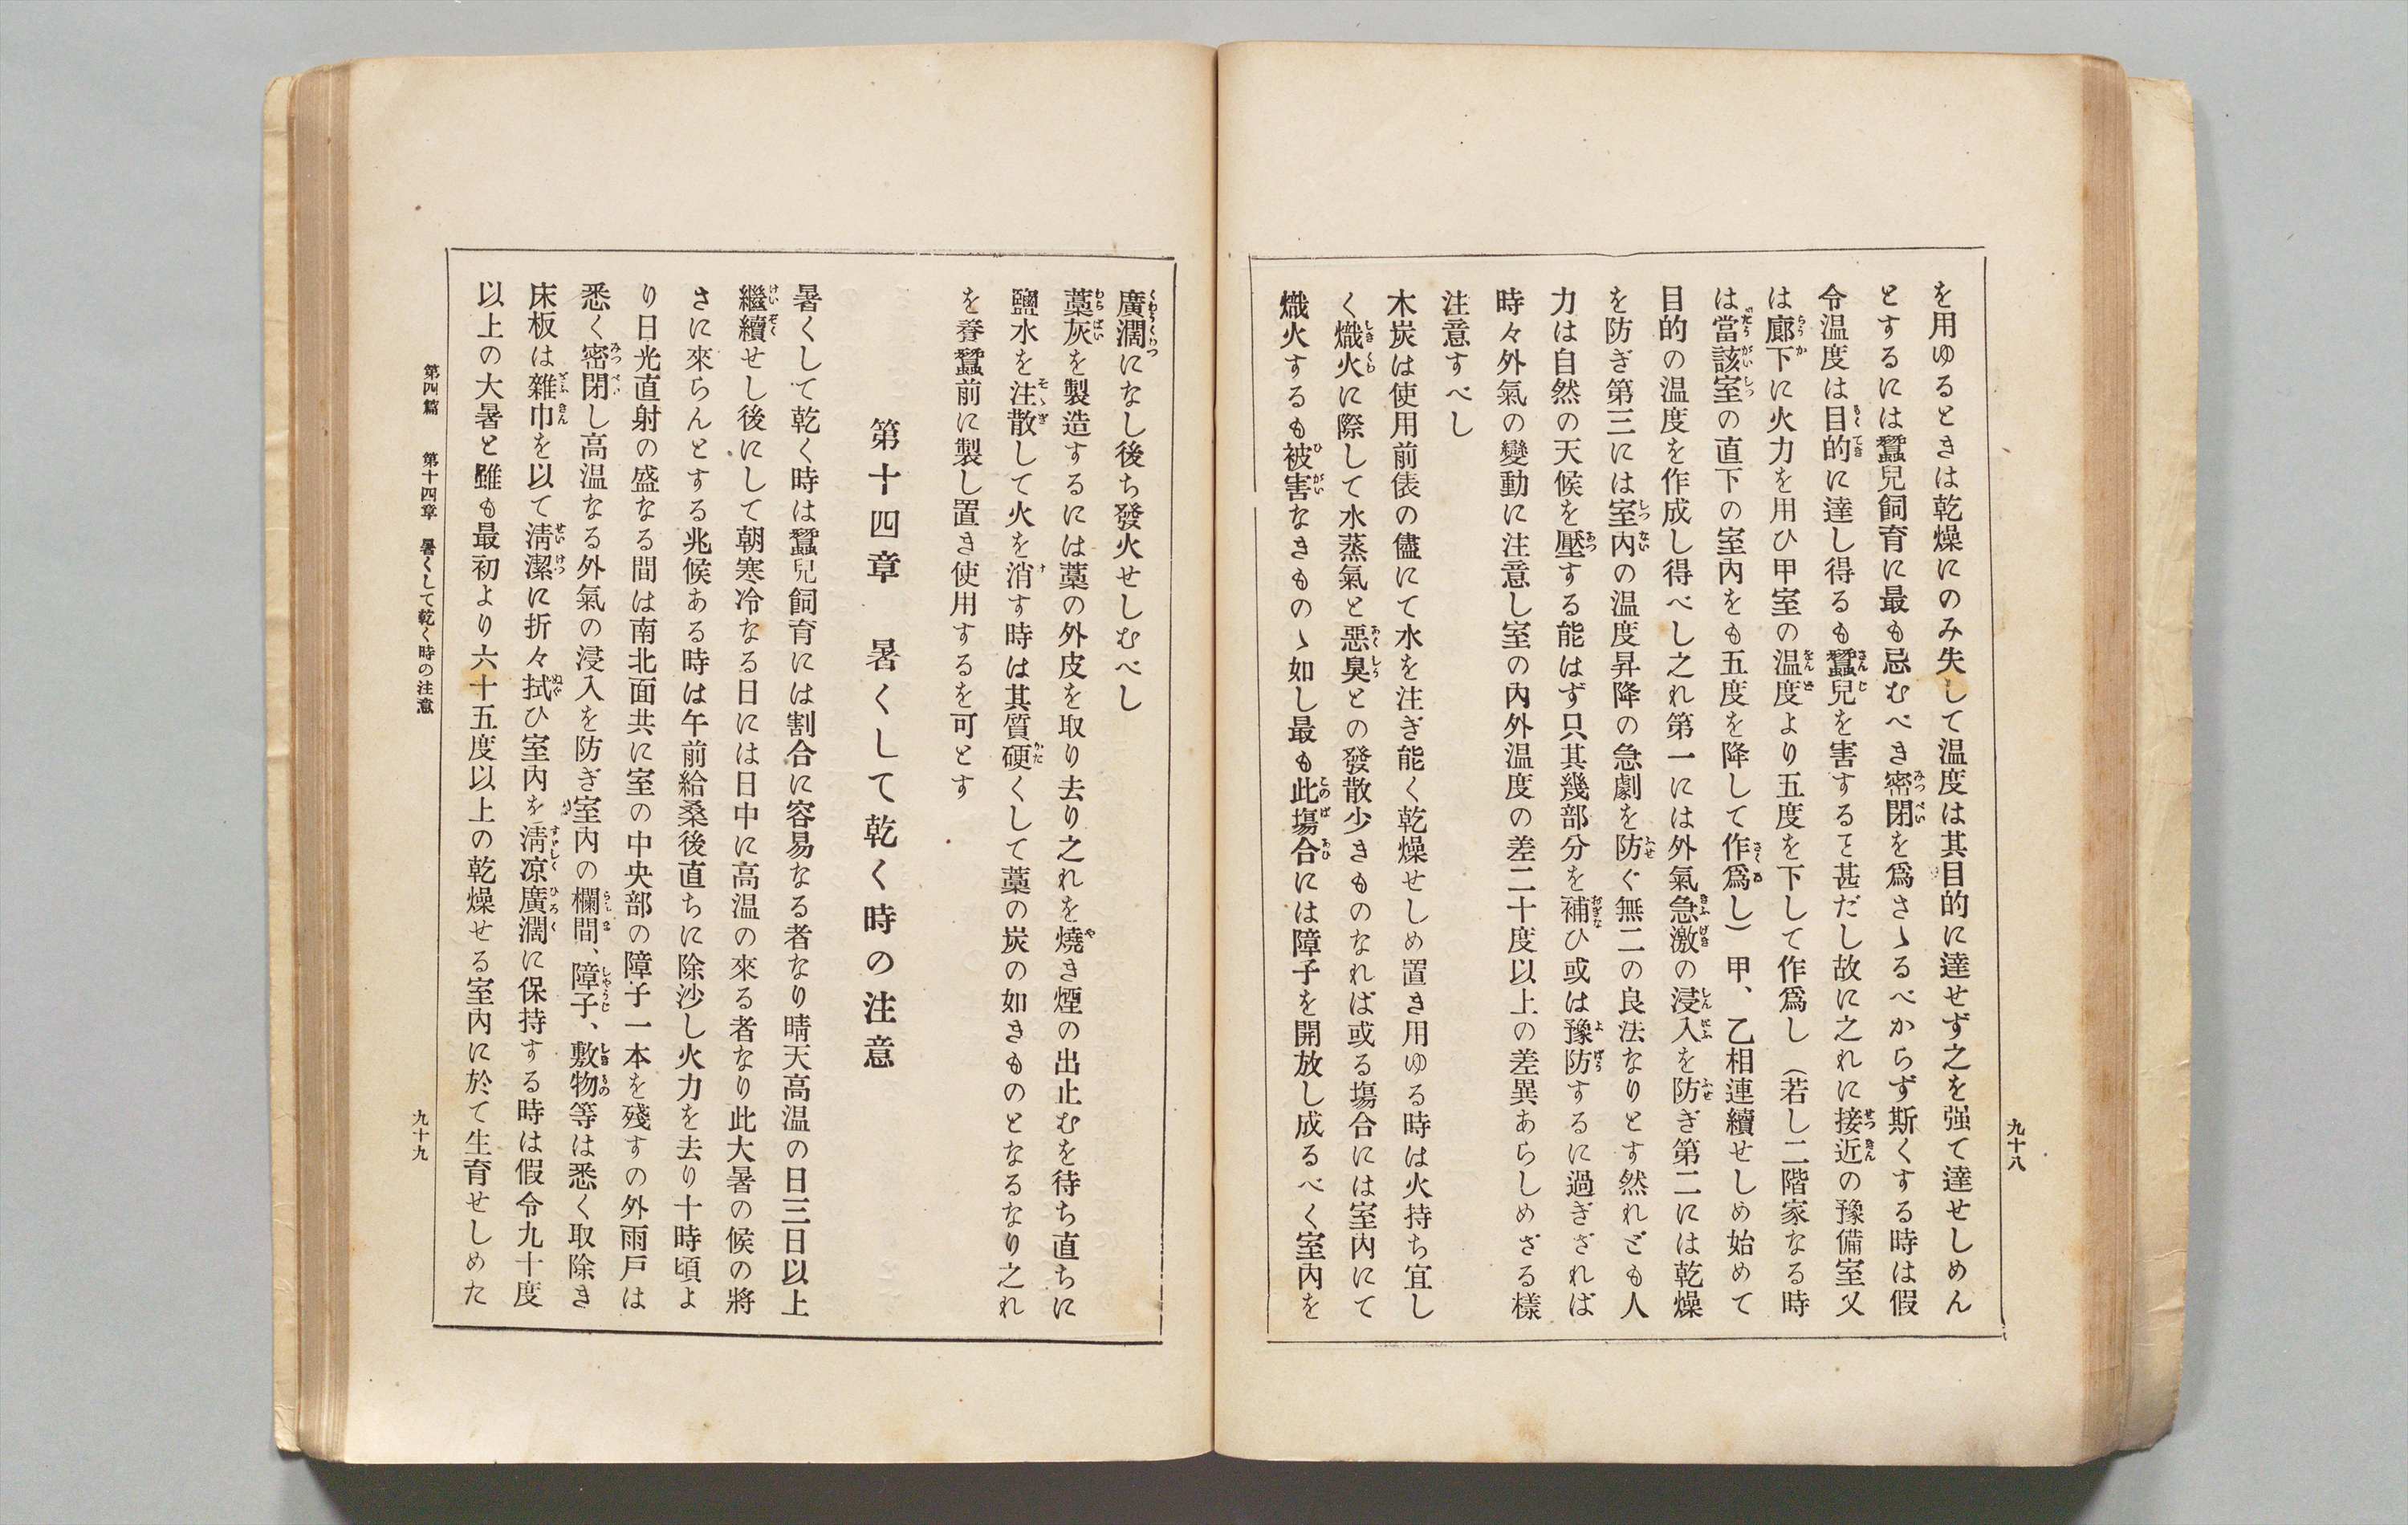 九十八
を用ゆるときは乾燥にのみ失して温度は其目的に達せず之を强て達せしめん
とするには蠶兒飼育に最も忌むべき密閉を爲さゝるべからず斯くする時は假
令温度は目的に達し得るも蠶兒を害するヿ甚だし故に之れに接近の豫備室又
は廊下に火力を用ひ甲室の温度より五度を下して作爲し（若し二階家なる時
は當該室の直下の室内をも五度を降して作爲し）甲、乙相連續せしめ始めて
目的の温度を作成し得べし之れ第一には外氣急激の浸入を防ぎ第二には乾燥
を防ぎ第三には室内の温度昇降の急劇を防ぐ無二の良法なりとす然れども人
力は自然の天候を壓する能はず只其幾部分を補ひ或は豫防するに過ぎざれば
時々外氣の變動に注意し室の内外温度の差二十度以上の差異あらしめざる樣
注意すべし
木炭は使用前俵の儘にて水を注ぎ能く乾燥せしめ置き用ゆる時は火持ち宜し
く熾火に際して水蒸氣と惡臭との發散少きものなれば或る塲合には室内にて
熾火するも被害なきものゝ如し最も此塲合には障子を開放し成るべく室内を
廣濶になし後ち發火せしむべし
藁灰を製造するには藁の外皮を取り去り之れを燒き煙の出止むを待ち直ちに
鹽水を注散して火を消す時は其質硬くして藁の炭の如きものとなるなり之れ
を養蠶前に製し置き使用するを可とす
第十四章　暑くして乾く時の注意
暑くして乾く時は蠶兒飼育には割合に容易なる者なり晴天高温の日三日以上
繼續せし後にして朝寒冷なる日には日中に高温の來る者なり此大暑の候の將
さに來らんとする兆候ある時は午前給桑後直ちに除沙し火力を去り十時頃よ
り日光直射の盛なる間は南北面共に室の中央部の障子一本を殘すの外雨戸は
悉く密閉し高温なる外氣の浸入を防ぎ室内の欄間、障子、敷物等は悉く取除き
床板は雜巾を以て淸潔に折々拭ひ室内を淸凉廣濶に保持する時は假令九十度
以上の大暑と雖も最初より六十五度以上の乾燥せる室内に於て生育せしめた
第四篇　第十四章　暑くして乾く時の注意
九十九